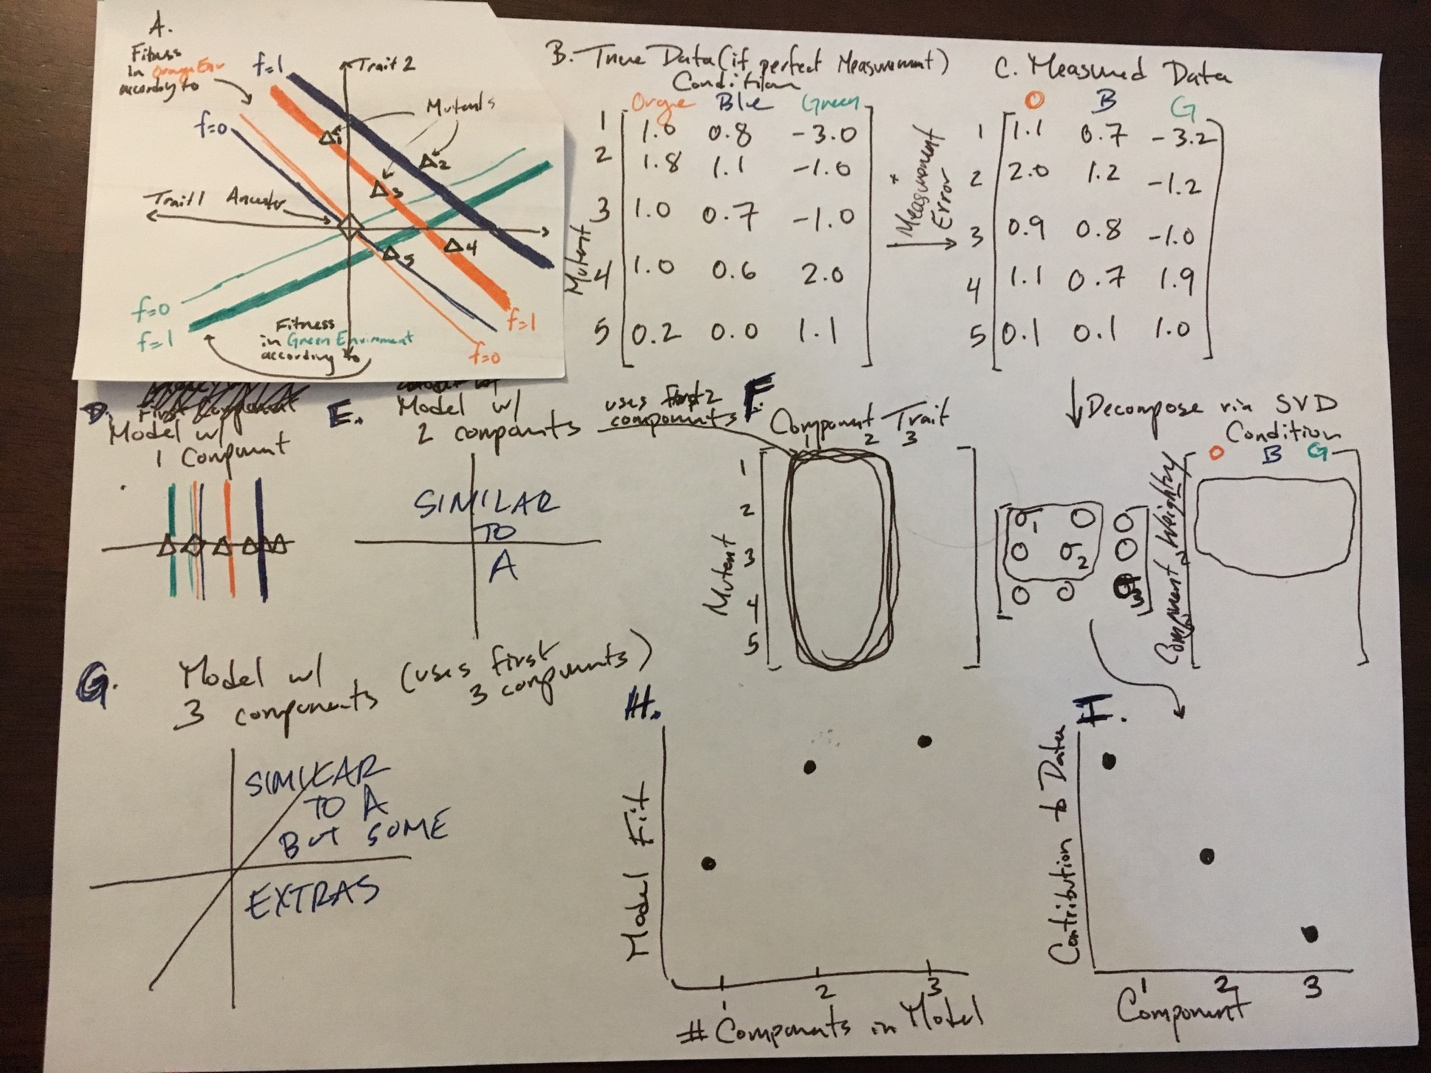 A.
Fitness
in Orange Env
according to
f=1
f=0
Trait 2
Mutants
Δ1
Δ2
Δ3
Trait 1 Ancestor
Δ4
Δ5
f=0
f=1
Fitness
in Green Environment
according to
f=1
f=0
B. True Data (if perfect Measurement)
Condition
Orange Blue Green
1 1.0 0.8 -3.0
2 1.8 1.1 -1.0
3 1.0 0.7 -1.0
4 1.0 0.6 2.0
5 0.2 0.0 1.1
Mutant
+
Measurement
Error
C. Measured Data
O B G
1 1.1 0.7 -3.2
2 2.0 1.2 -1.2
3 0.9 0.8 -1.0
4 1.1 0.7 1.9
5 0.1 0.1 1.0
Decompose via SVD
D.
Model w/
1 Component
E.
Model w/
2 components
SIMILAR
TO
A
uses first 2
components
F.
Component Trait
1 2 3
Mutant
1
2
3
4
5
Condition
O B G
G. Model w/
3 components
(uses first
3 components)
SIMILAR
TO A
BUT SOME
EXTRAS
H.
Model Fit
1 2 3
# Components in Model
I.
Contribution to Data
1 2 3
Component